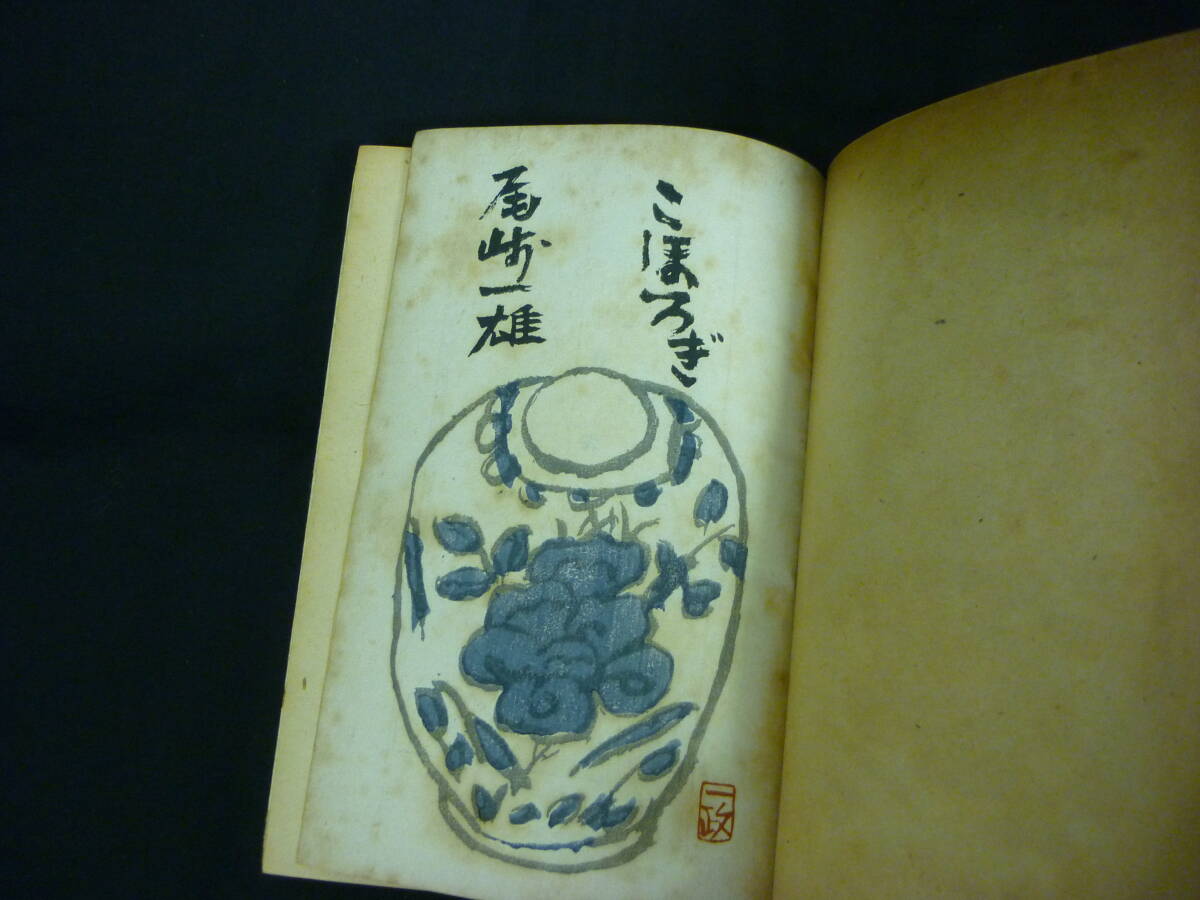 こほろぎ
尾崎一雄
一政